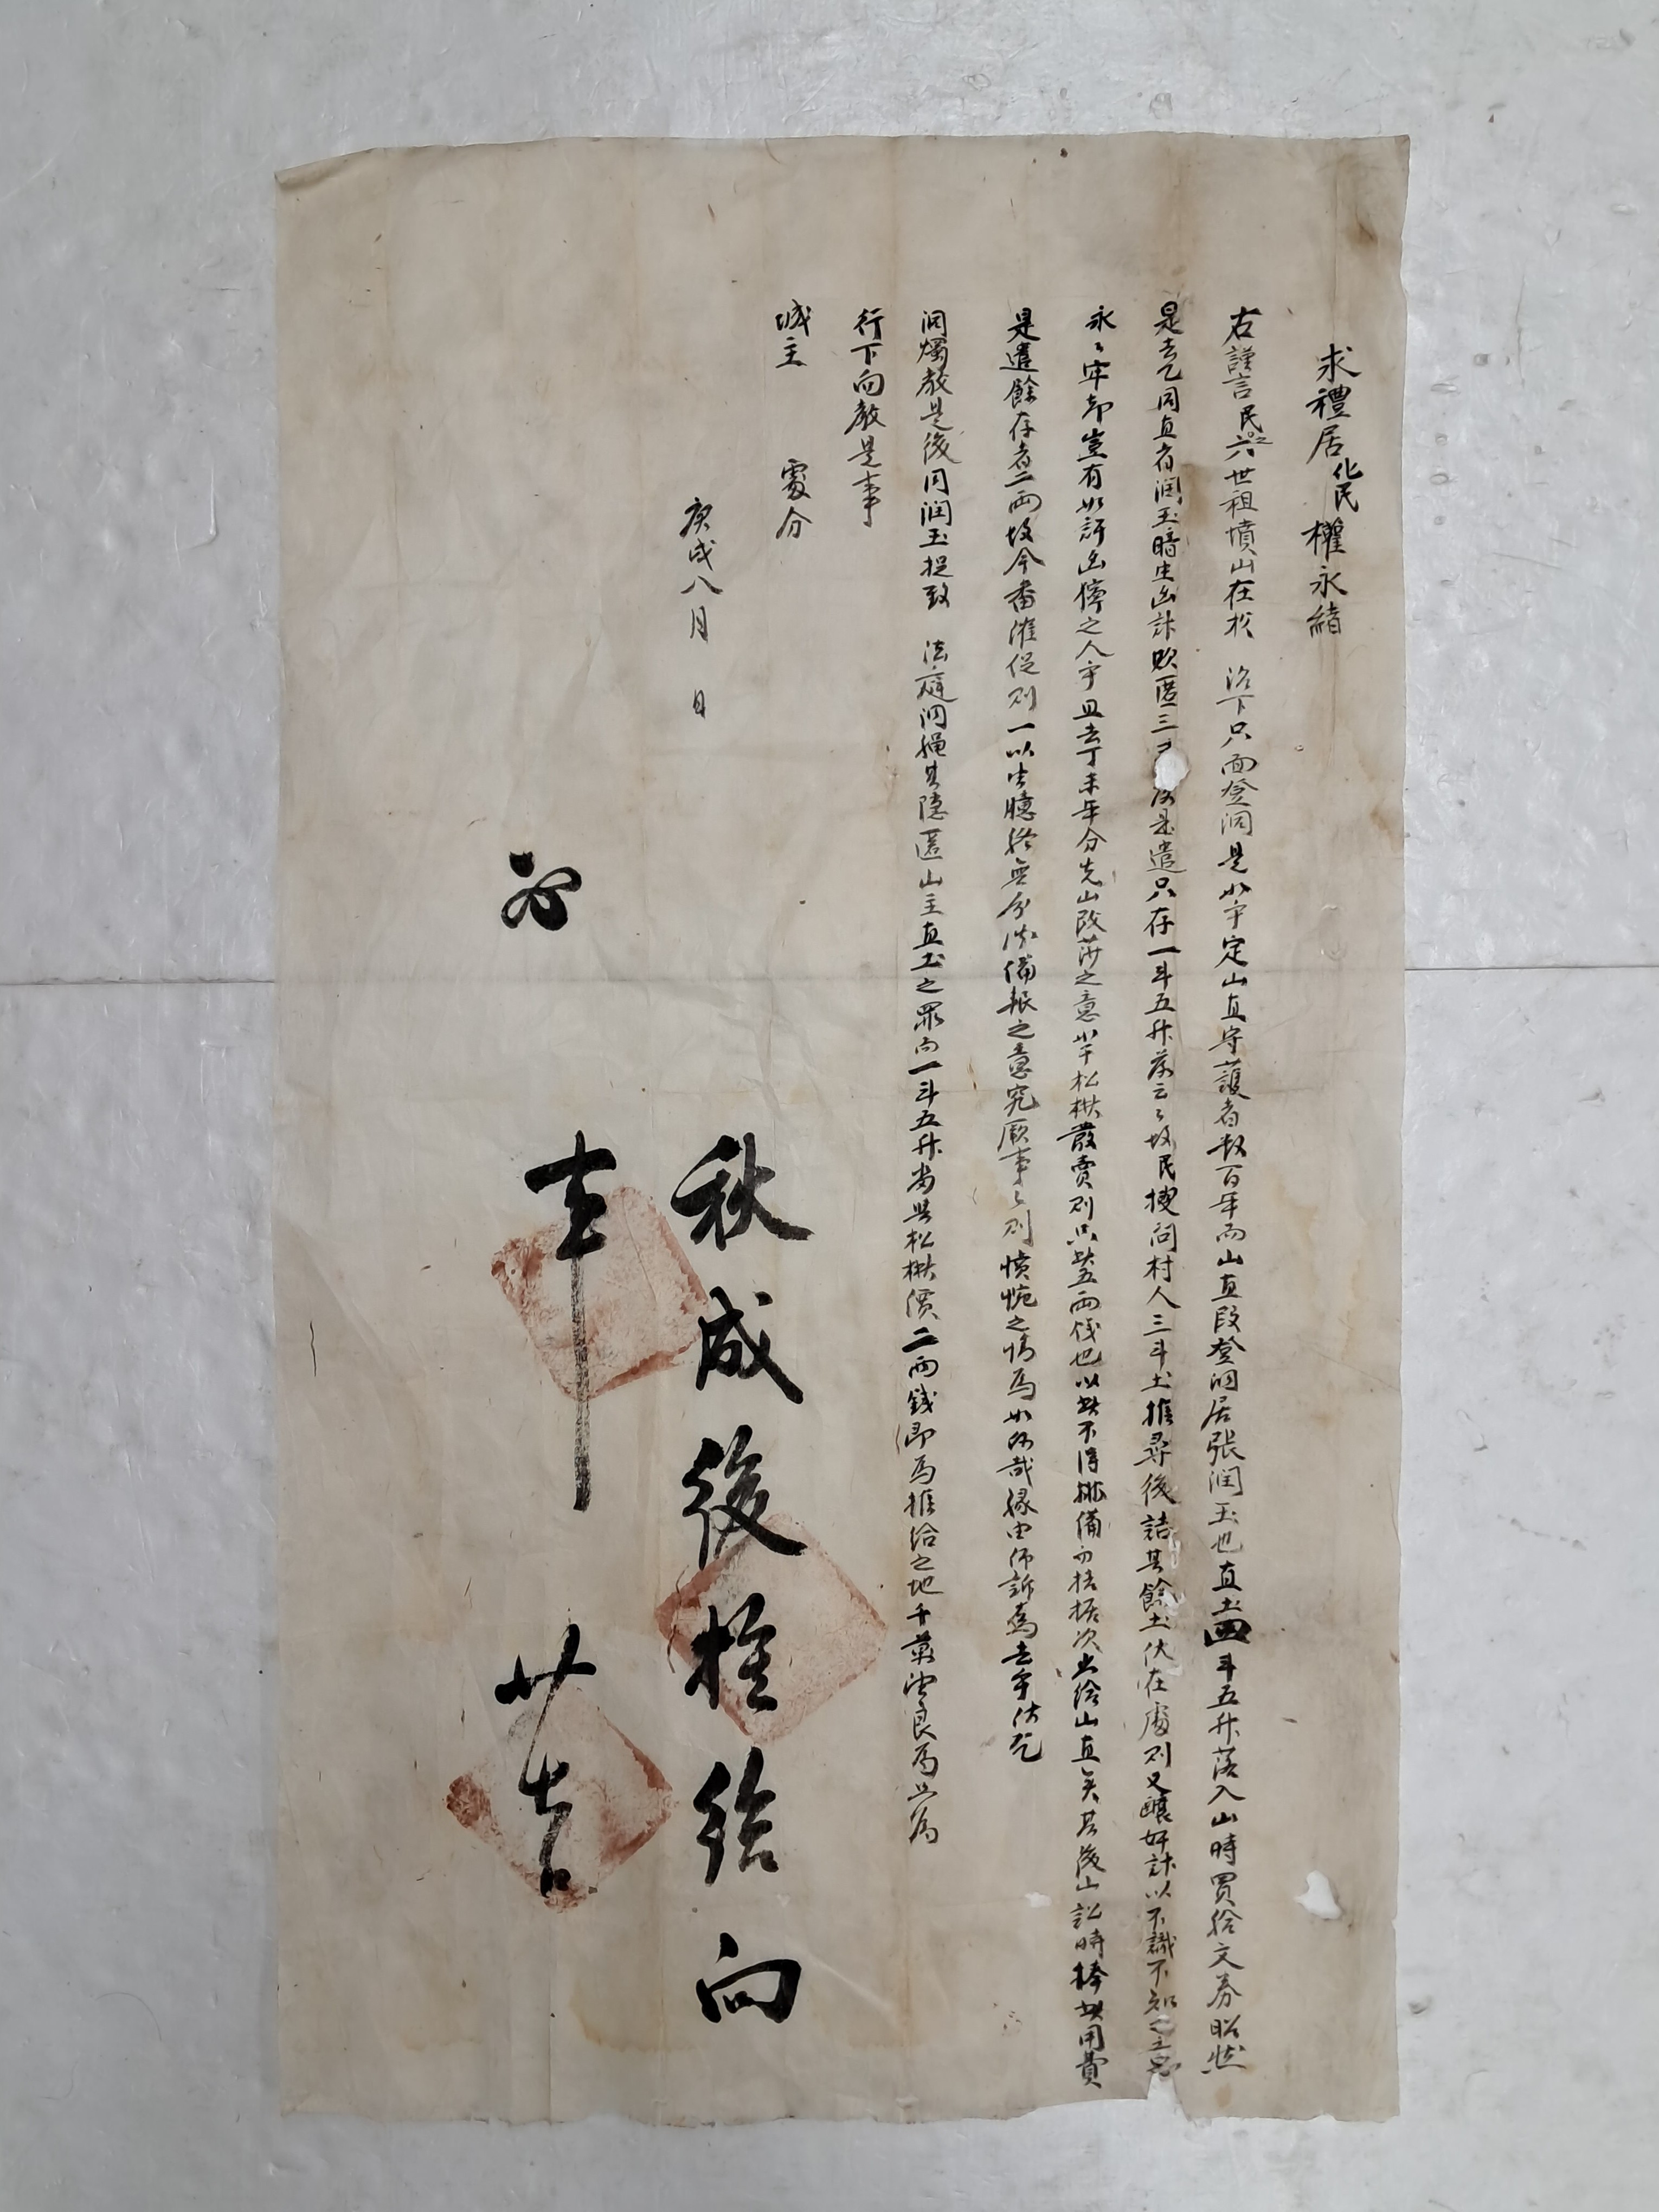 求禮居化民權永緒
右謹言民矣六世祖墳山在於 治下只面登洞是如乎定山直守護者數百年而山直段登洞居張潤玉也直土四斗五升落入山時買給文券昭然
是去乙同直者潤玉暗生凶計欺匿三 是遣只存一斗五升落云々故民搜問村人三斗土推尋後詰其餘土伏在處則又釀奸計以不識不知之
永々牢却豈有如許凶獰之人乎且去丁未年分先山改莎之意 松楸發賣則只此五兩錢也以此不得 備 次出給山直矣其後山訟時捧此用費
是遣餘存者二兩故今番催促則一以生臆終無分數備報之意究厥事々則憤惋之情爲如何哉緣由仰訴爲去乎伏乞
洞燭教是後同潤玉捉致 法庭洞繩其隱匿山主直土之罪而一斗五升畓與松楸價二兩錢即爲推給之地千萬望良爲只爲
行下向教是事
城主 處分
庚戌八月 日
秋成後推給向
事 廿吉